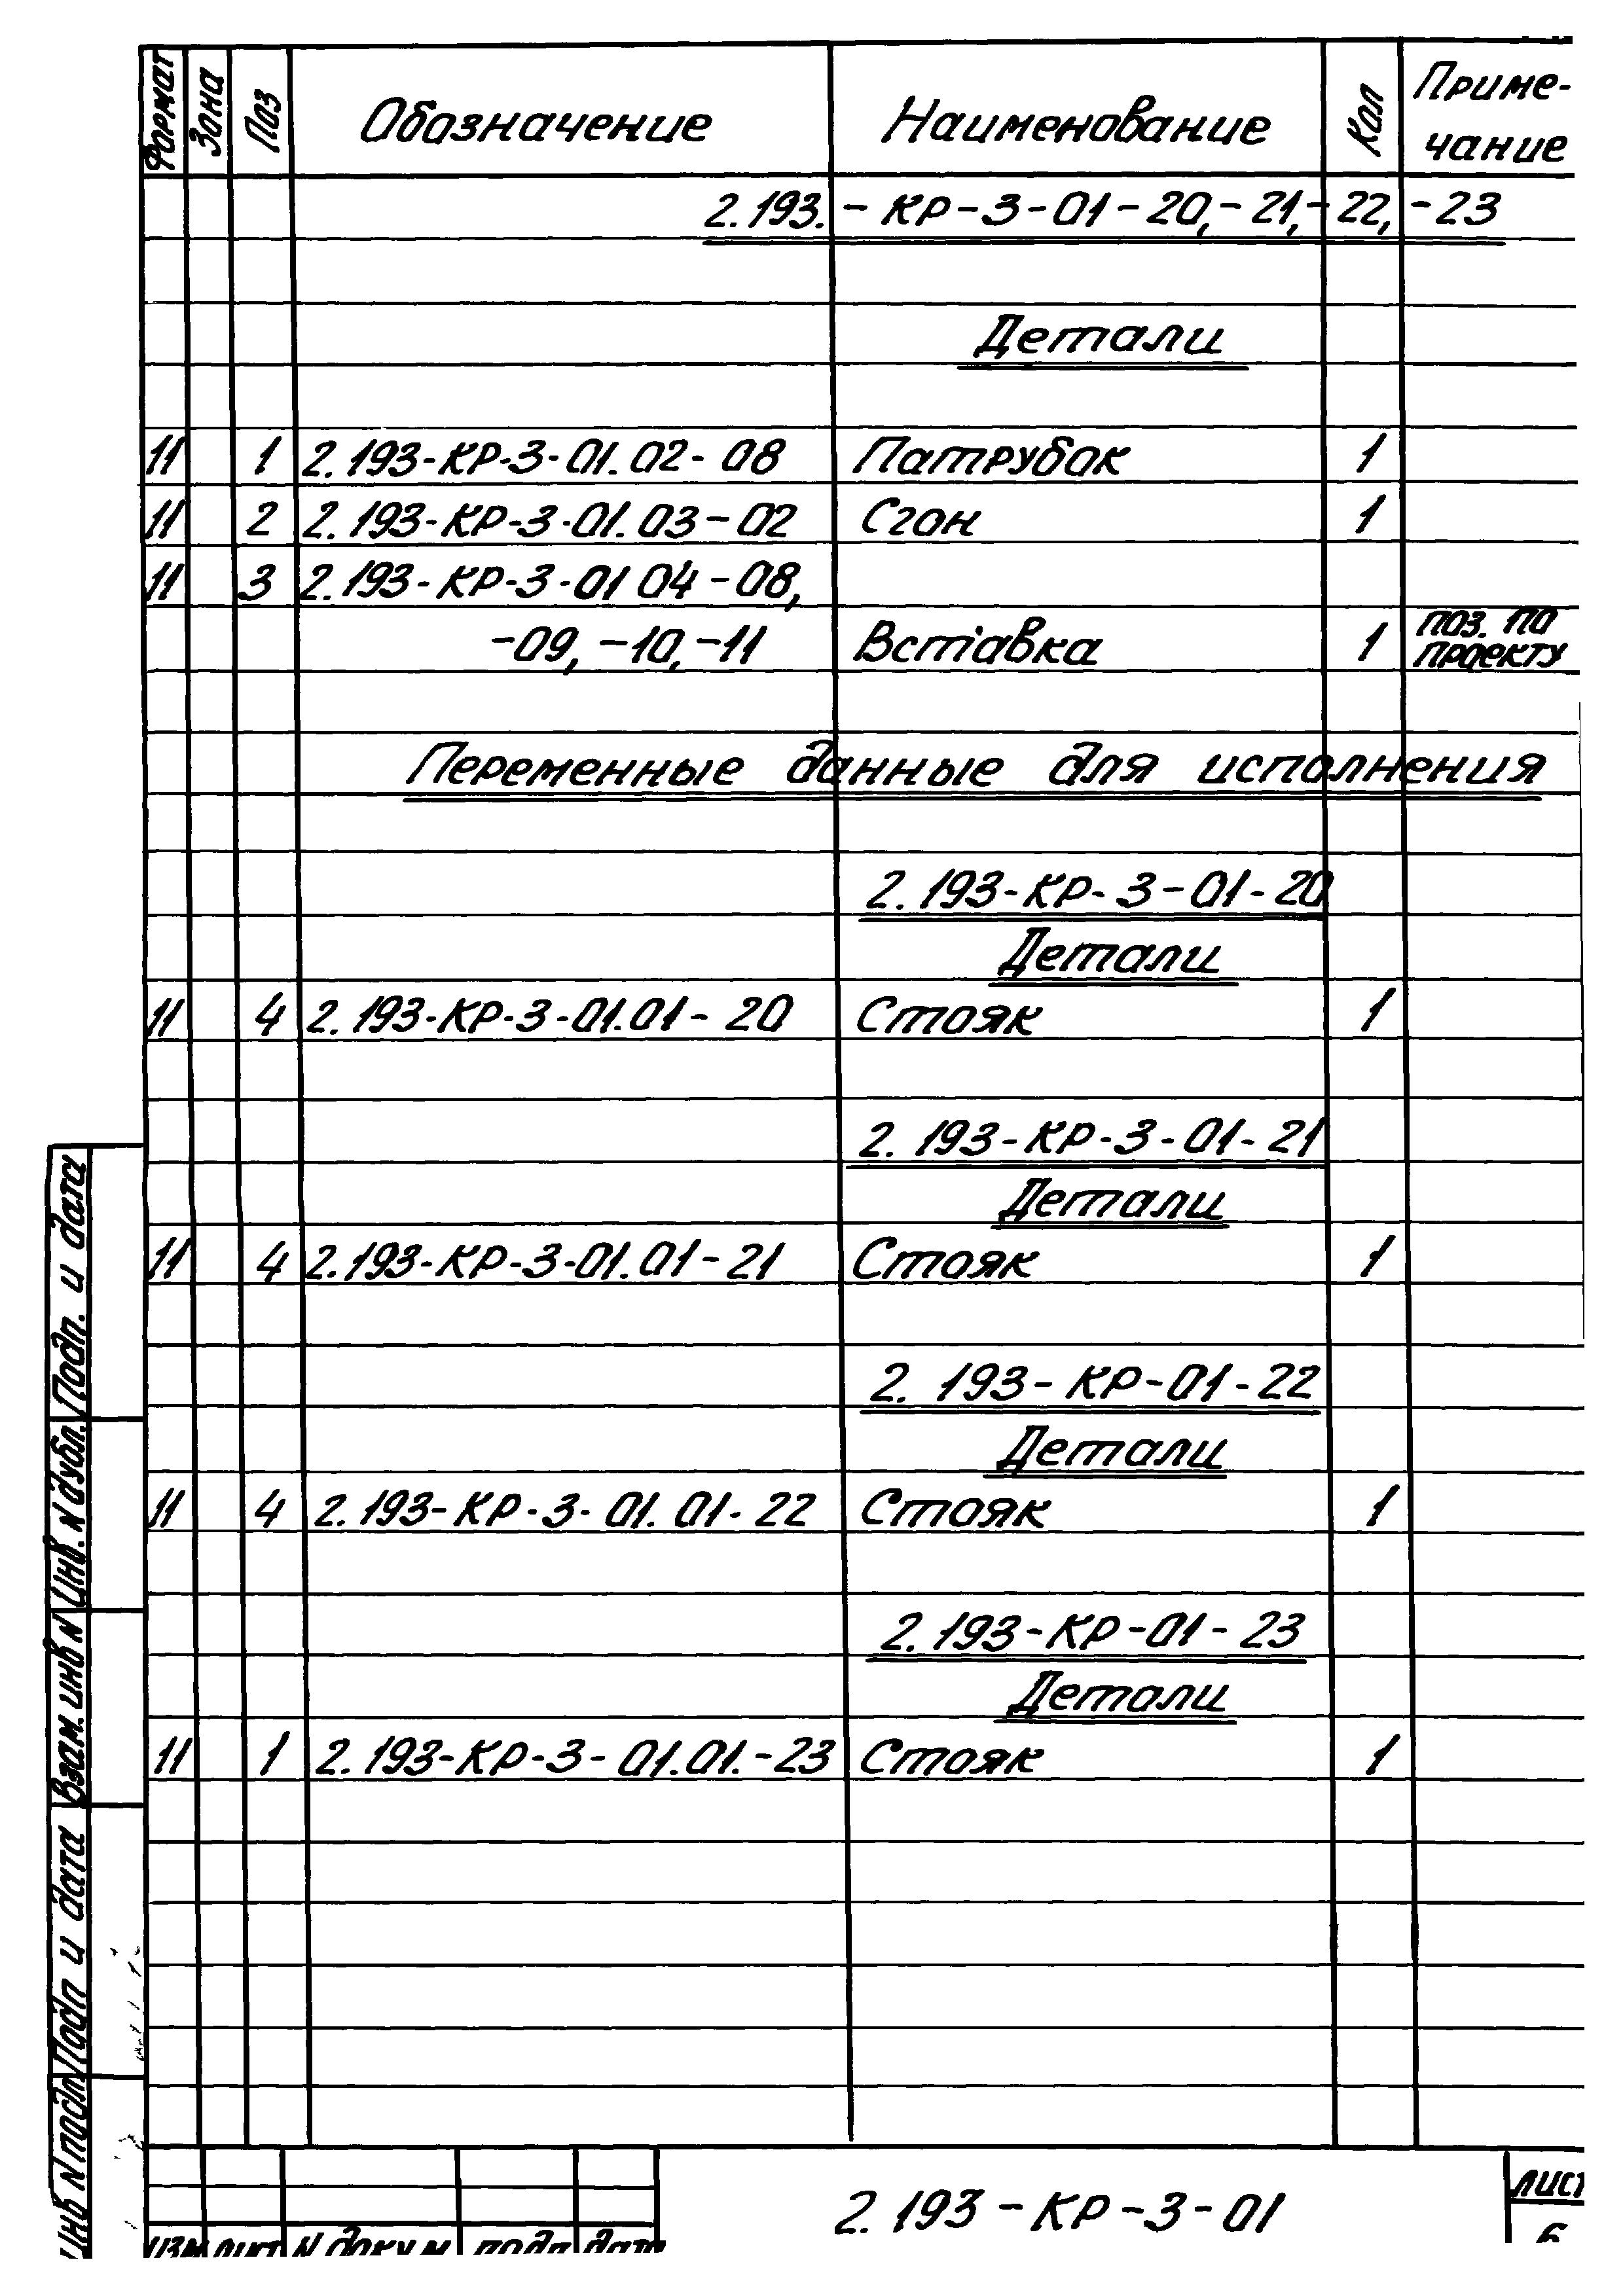 Формат Зона Поз Обозначение Наименование Кол Приме-
чание
2.193.-КР-3-01-20,-21,-22,-23
Детали
11 1 2.193-КР-3-01.02-08 Патрубок 1
11 2 2.193-КР-3-01.03-02 Сгон 1
11 3 2.193-КР-3-01 04-08,
-09, -10, -11 Вставка 1 поз. по
проекту
Переменные данные для исполнения
2.193-КР-3-01-20
Детали
11 4 2.193-КР-3-01.01-20 Стояк 1
2.193-КР-3-01-21
Детали
11 4 2.193-КР-3-01.01-21 Стояк 1
2.193-КР-01-22
Детали
11 4 2.193-КР-3-01.01-22 Стояк 1
2.193-КР-01-23
Детали
11 1 2.193-КР-3-01.01.-23 Стояк 1
Подп. и дата
Инв. N дубл.
Взам. инв N
Подп и дата
Инв N подл
2.193-КР-3-01
лист
6
Изм лист N докум подп дата